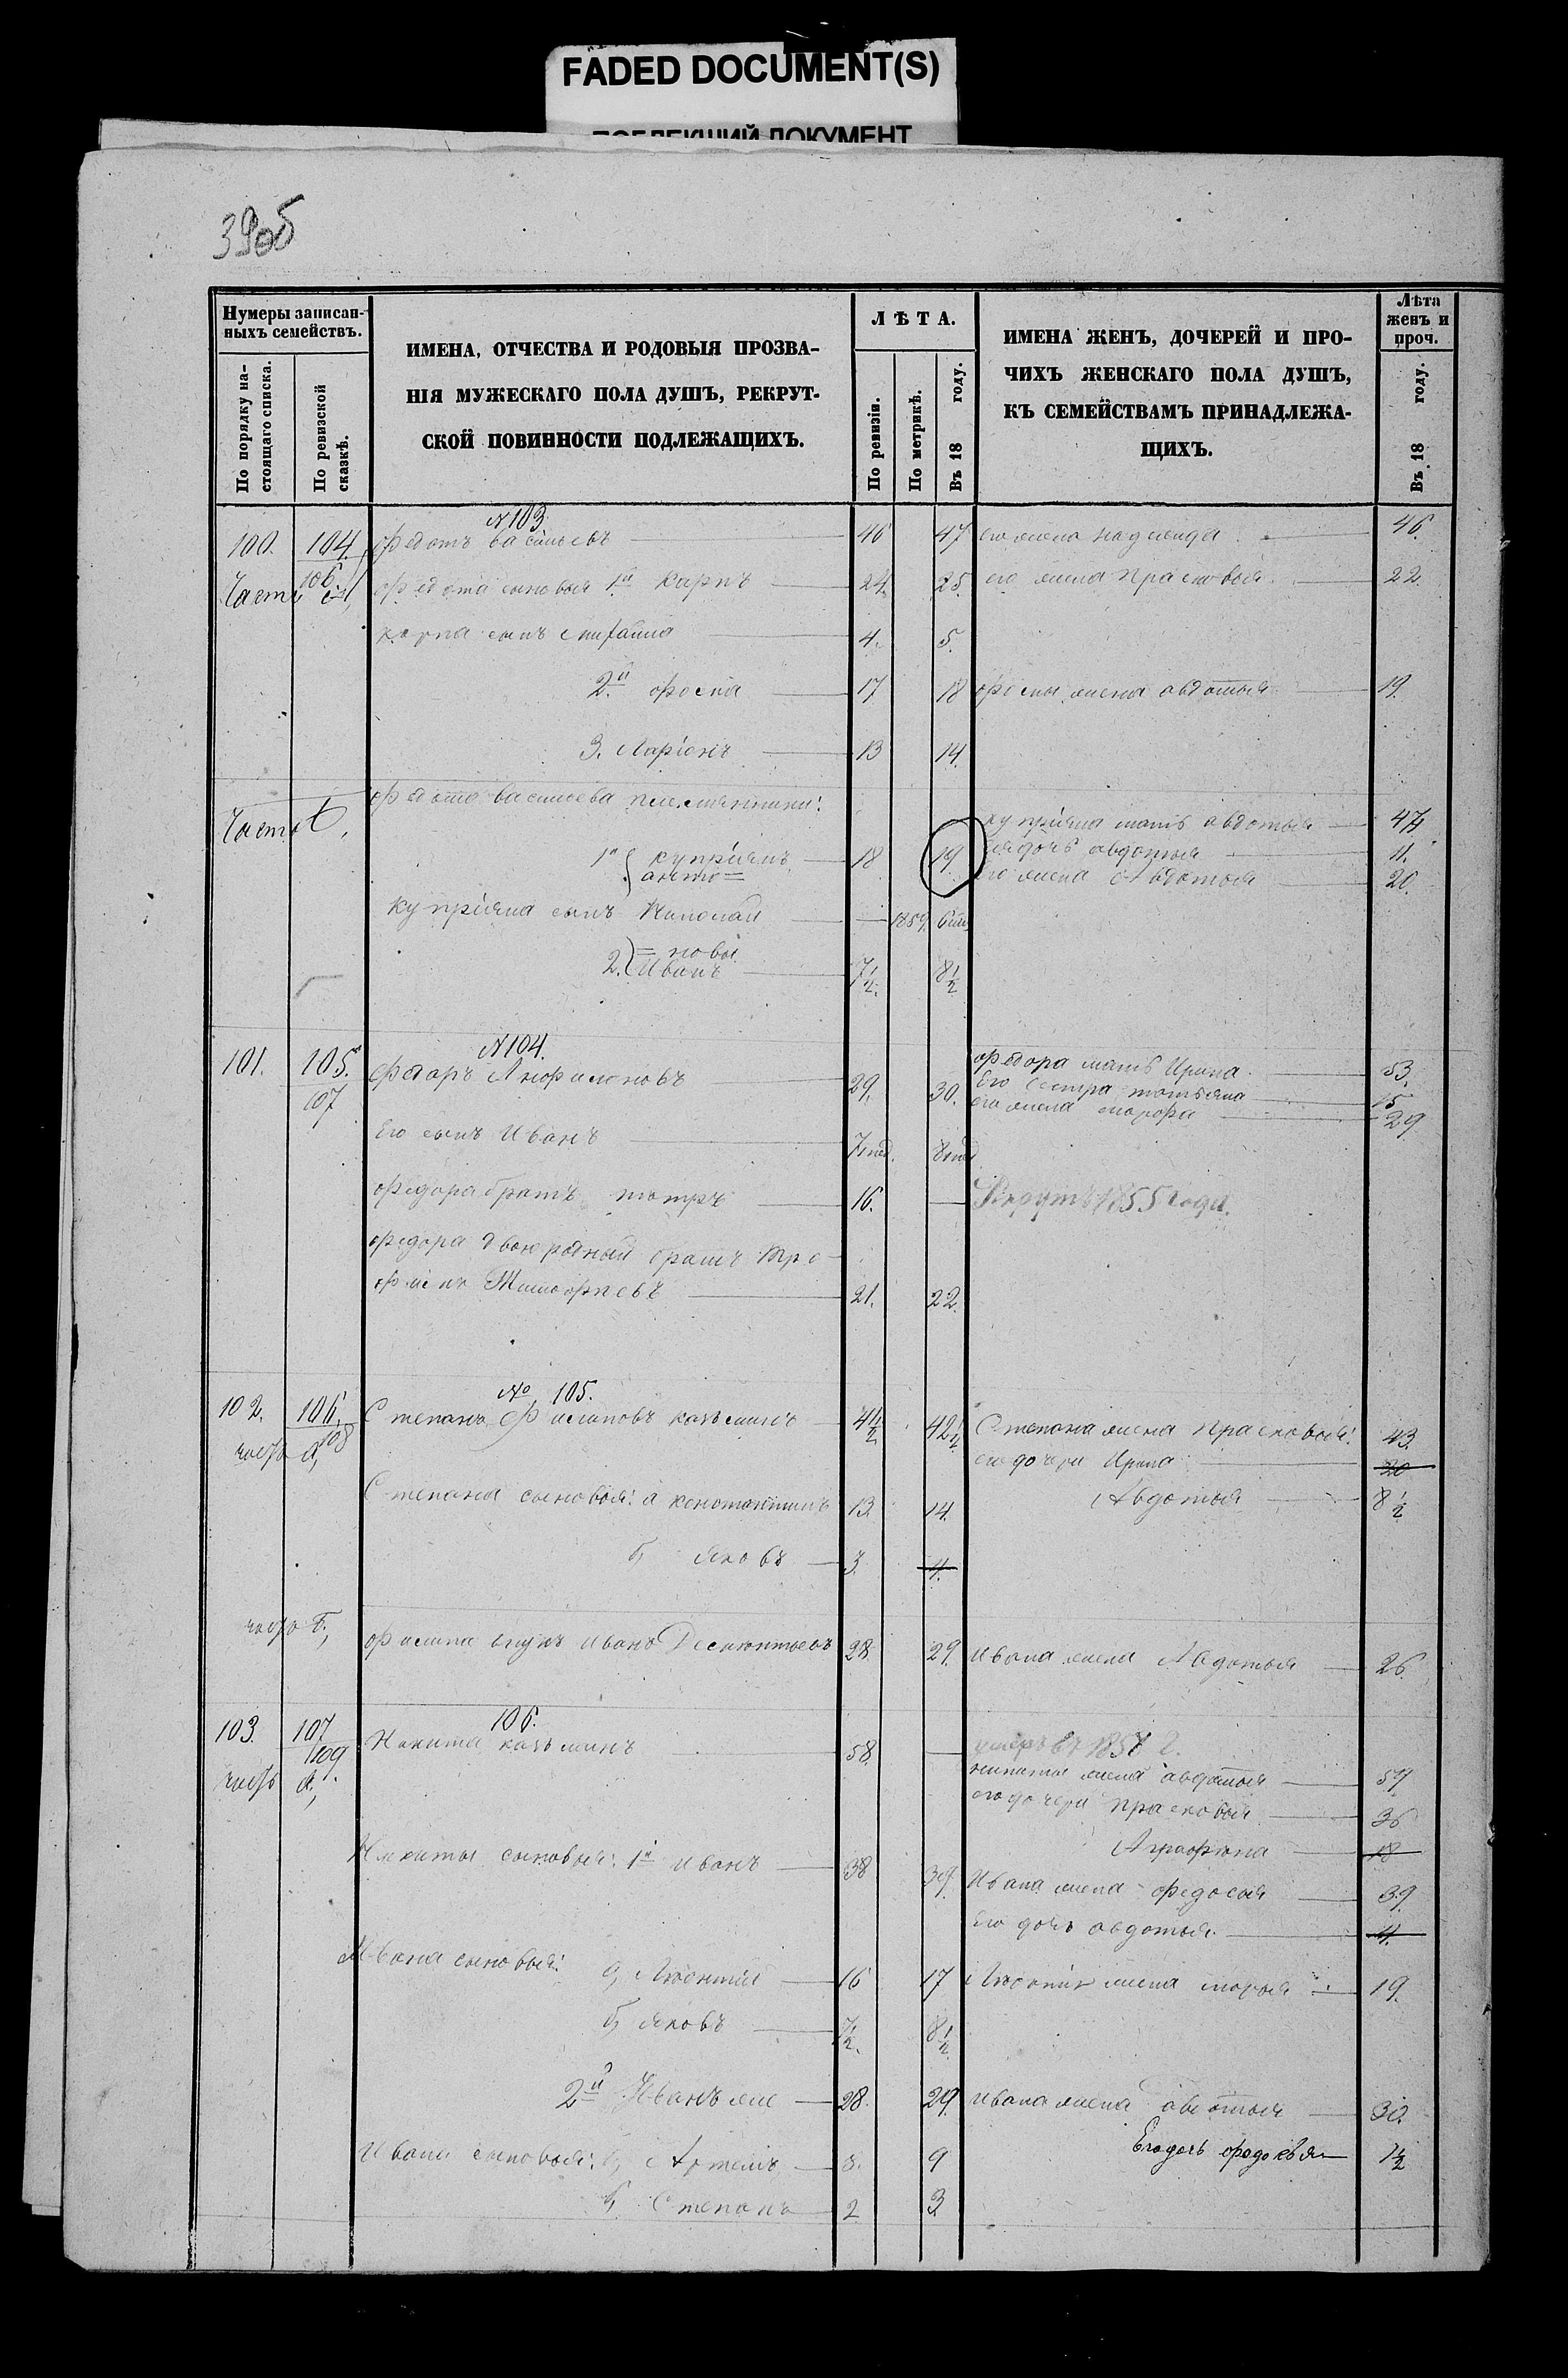 FADED DOCUMENT(S)
39об
Нумеры записан-
ныхъ семействъ.
По порядку на-
стоящаго списка.
По ревизской
сказкѣ.
ИМЕНА, ОТЧЕСТВА И РОДОВЫЯ ПРОЗВА-
НІЯ МУЖЕСКАГО ПОЛА ДУШЪ, РЕКРУТ-
СКОЙ ПОВИННОСТИ ПОДЛЕЖАЩИХЪ.
ЛѢТА.
По ревизіи.
По метрикѣ.
Въ 18 году.
ИМЕНА ЖЕНЪ, ДОЧЕРЕЙ И ПРО-
ЧИХЪ ЖЕНСКАГО ПОЛА ДУШЪ,
КЪ СЕМЕЙСТВАМЪ ПРИНАДЛЕЖА-
ЩИХЪ.
Лѣта
женъ и
проч.
Въ 18 году.
N 103
100. 104. Федотъ Васильевъ 46 47 его жена надежда 46.
106.
Часть а, Федота сыновья 1й Карпъ 24. 25. его жена Прасковья 22.
карпа сынъ 4. 5.
2й фосма 17 18 фосмы жена авдотья 19.
3. Ларіонъ 13 14.
Федота Васильева племянники:
Часть б, купріяна мать авдотья 47
1й купріянъ 18 19 дочь авдотья 11.
его жена Авдотья 20.
купріяна сынъ Николай 1859.
2. Иванъ 7½ 8½
N 104.
101. 105. Федоръ 29. 30. федора мать Ирина 53.
107 Его сестра татьяна 15
его жена марфа 29
Его сынъ Иванъ 7 нед. 8 нед
Федора братъ петръ 16. Рекрутъ 1855 года.
федора двоюродный братъ Тро-
фимъ Тимофѣевъ 21. 22.
№ 105.
102. 106. Степанъ Филиповъ казьминъ 41½ 42½ Степана жена Прасковья: 43.
108
часть а, его дочери Ирина 20
Степана сыновья: а константинъ 13. 14. Авдотья 8½
б, яковъ 3. 4.
часть б, филипа внукъ иванъ 28. 29. ивана жена Авдотья 26.
106.
103. 107 Никита казьминъ 58. умеръ въ 1857 г.
109
часть а, никиты жена авдотья 57
его дочери прасковья 36
Аграфена 18
Никиты сыновья: 1й иванъ 38 39. Ивана жена федосья 39
Его дочь авдотья 4.
Ивана сыновья: а, 16 17 жена марья 19.
б, яковъ 7½. 8½
2й Иванъ же 28. 29. ивана жена авдотья 30.
Ивана сыновья: Артемъ 8. 9 Его дочь 1½
б, Степанъ 2 3